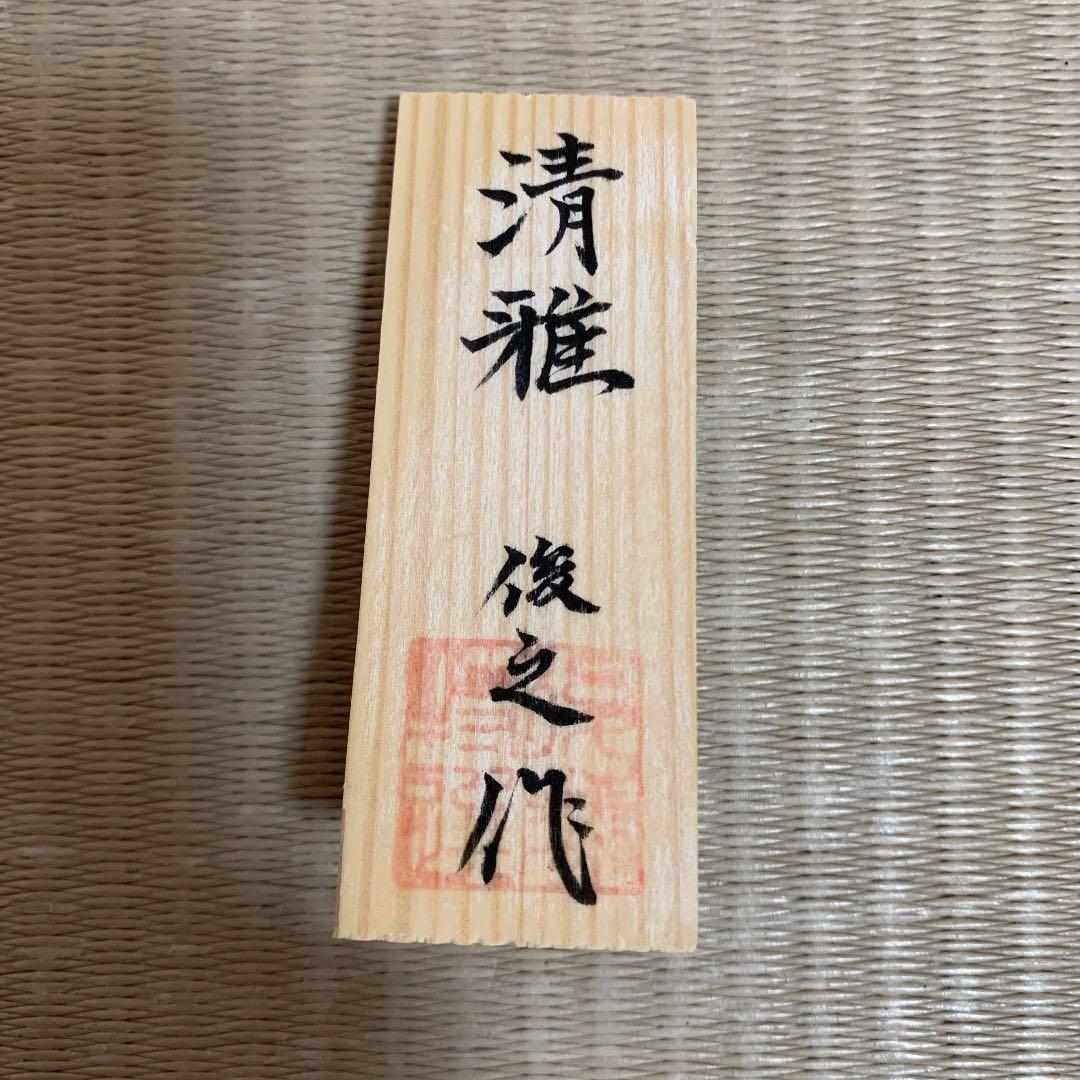 清雅
俊之作